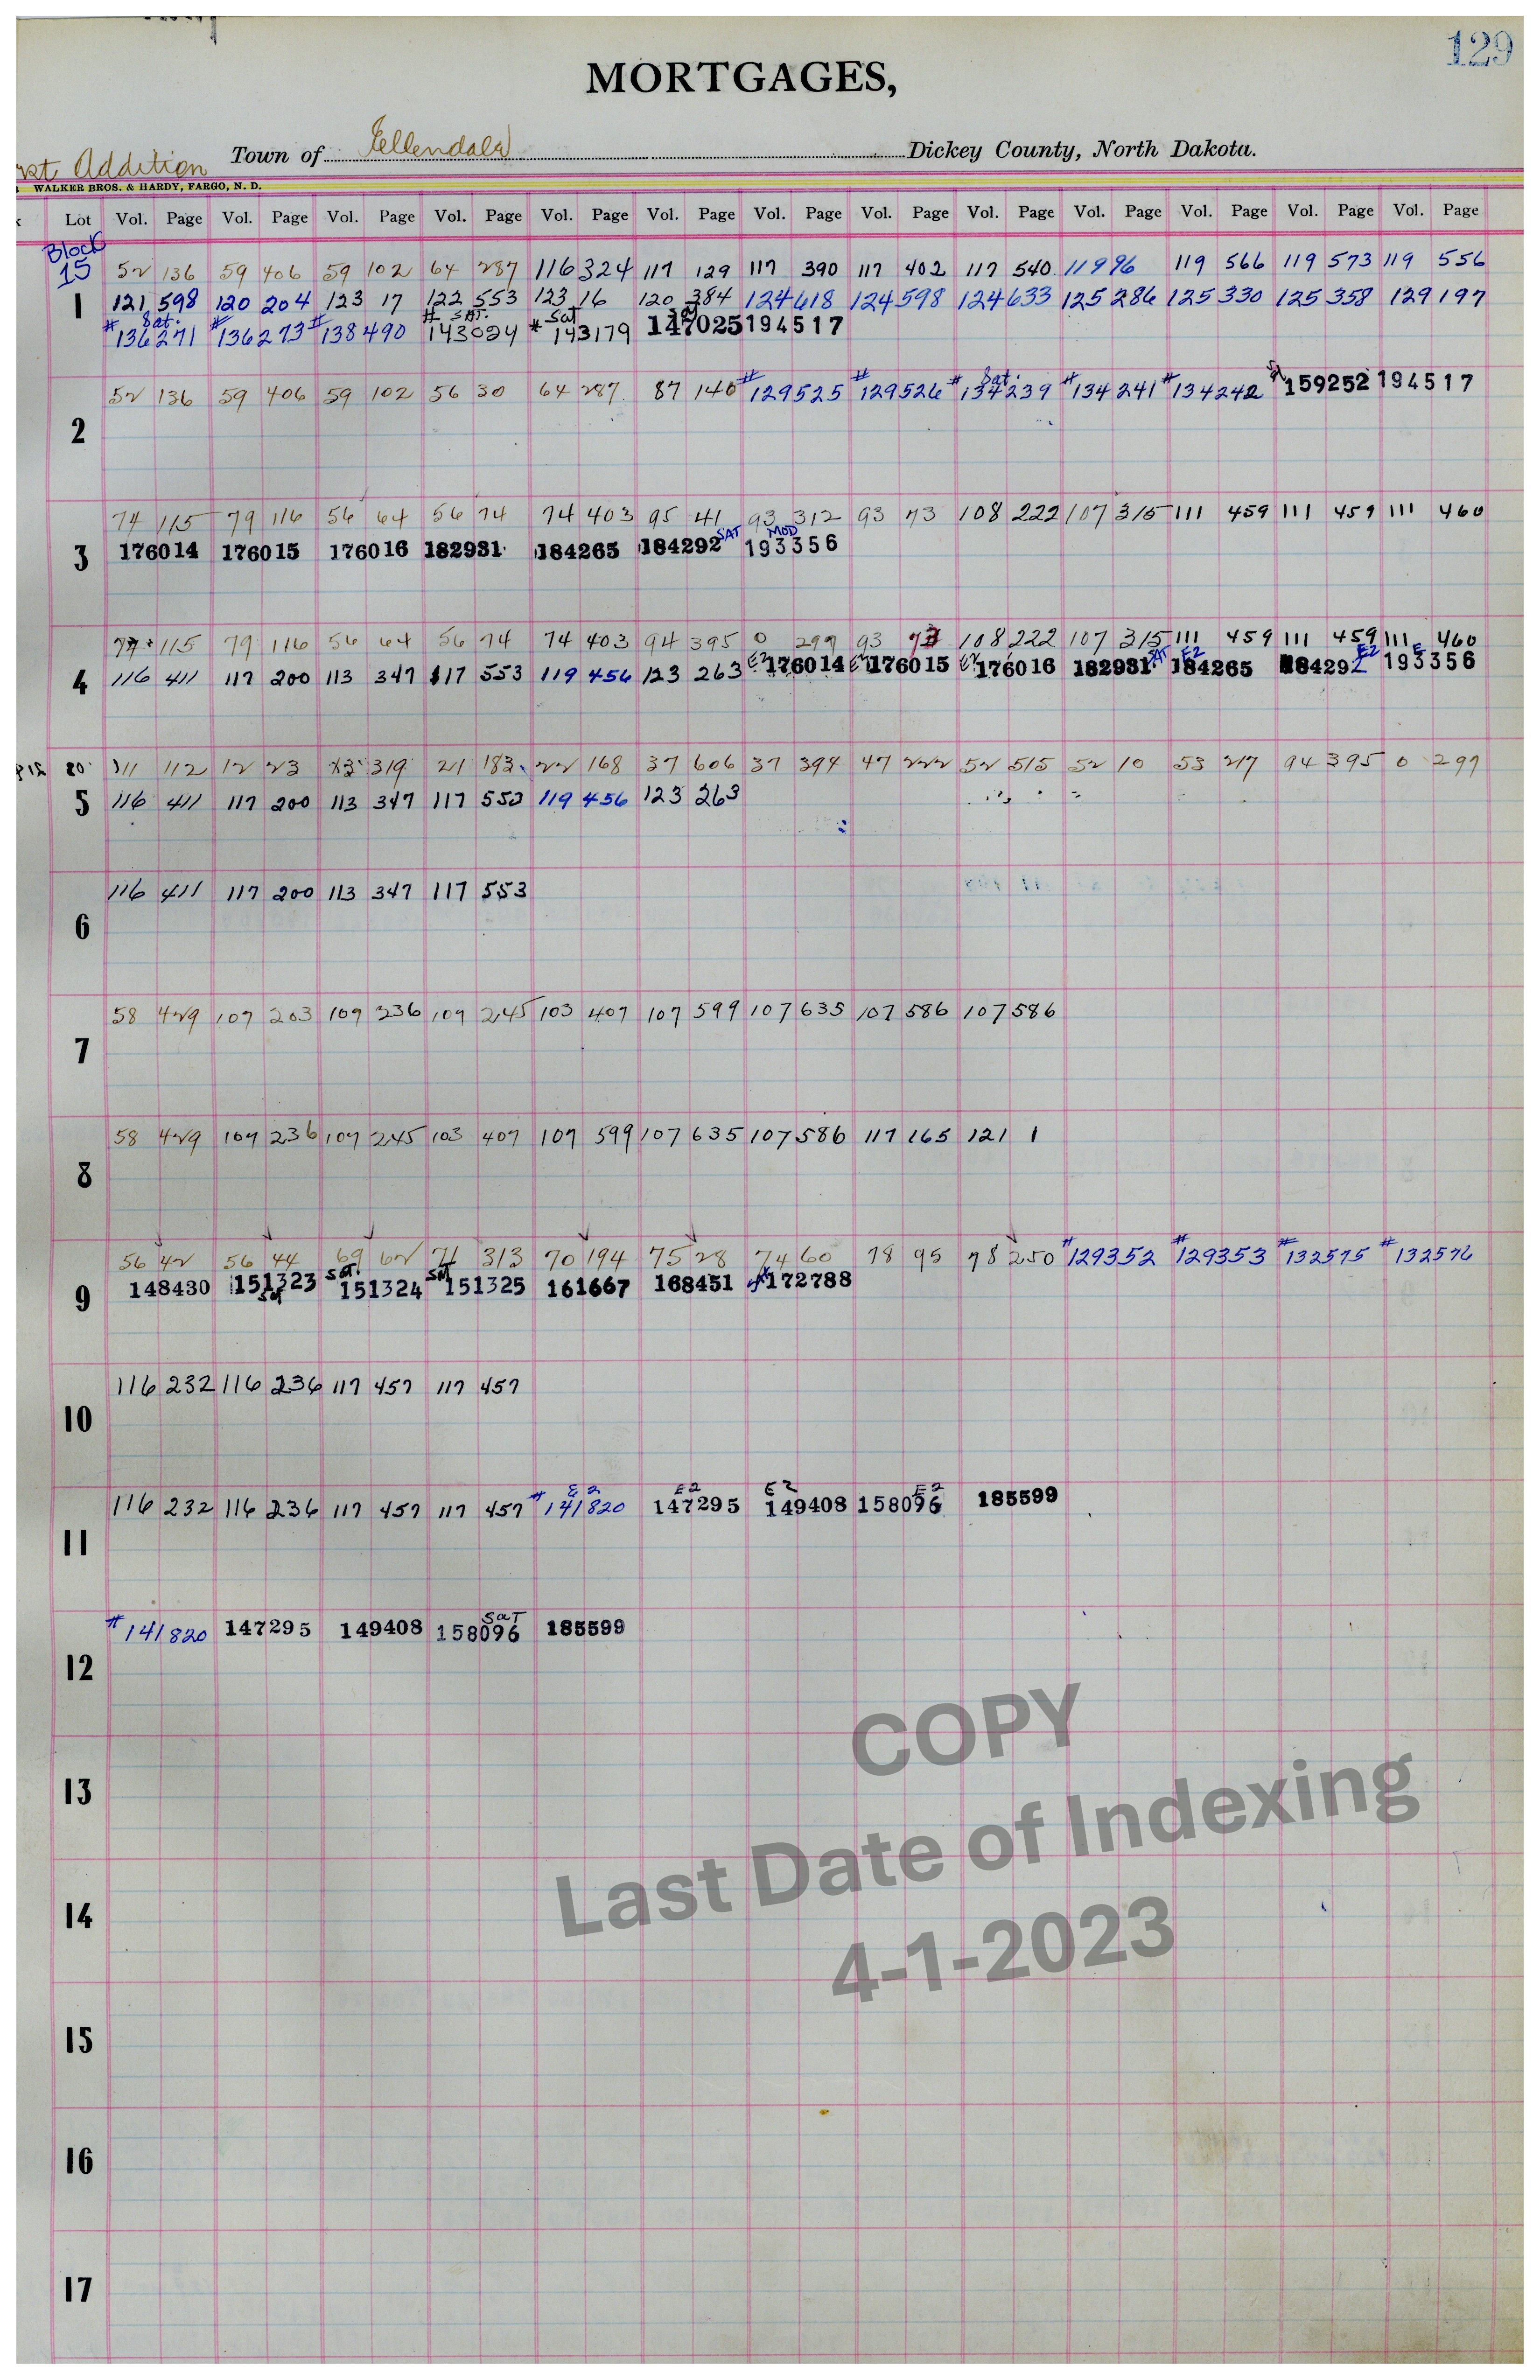 129
MORTGAGES,
Addition Town of Ellendale Dickey County, North Dakota.
WALKER BROS. & HARDY, FARGO, N. D.
Lot Vol. Page Vol. Page Vol. Page Vol. Page Vol. Page Vol. Page Vol. Page Vol. Page Vol. Page Vol. Page Vol. Page Vol. Page Vol. Page
Block
15 52 136 59 406 59 102 64 287 116 324 117 129 117 390 117 402 117 540 119 96 119 566 119 573 119 556
1 121 598 120 204 123 17 122 553 123 16 120 384 124 618 124 598 124 633 125 286 125 330 125 358 129 197
Sat. # Sat. Sat Sat
#136271 #136273 #138490 143024 * 143179 147025 194517
Sat. Sat
52 136 59 406 59 102 56 30 64 287 87 140 #129525 #129526 #134239 #134241 #134242 159252 194517
2
74 115 79 116 56 64 56 74 74 403 95 41 93 312 93 73 108 222 107 315 111 459 111 459 111 460
SAT MOD
3 176014 176015 176016 182931 184265 184292 193356
115 79 116 56 64 56 74 74 403 94 395 0 299 93 73 108 222 107 315 111 459 111 459 111 460
E2 E2 E2 SAT E2 E2 E
4 116 411 117 200 113 347 117 553 119 456 123 263 176014 176015 176016 182931 184265 184292 193356
20 111 112 12 23 319 21 183 22 168 37 606 37 394 47 222 52 515 52 10 53 217 94 395 0 299
5 116 411 117 200 113 347 117 553 119 456 123 263
116 411 117 200 113 347 117 553
6
58 429 107 203 109 236 109 245 103 407 107 599 107 635 107 586 107 586
7
58 429 109 236 109 245 103 407 107 599 107 635 107 586 117 165 121 1
8
56 42 56 44 69 62 71 313 70 194 75 28 74 60 78 95 78 250 #129352 #129353 #132575 #132576
Sat. Sat
148430 151323 151324 151325 161667 168451 172788
Sat
9
116 232 116 236 117 457 117 457
10
E2 E2 E2 E2
116 232 116 236 117 457 117 457 #141820 147295 149408 158096 185599
11
Sat
#141820 147295 149408 158096 185599
12
13
14
15
16
17
COPY
Last Date of Indexing
4-1-2023